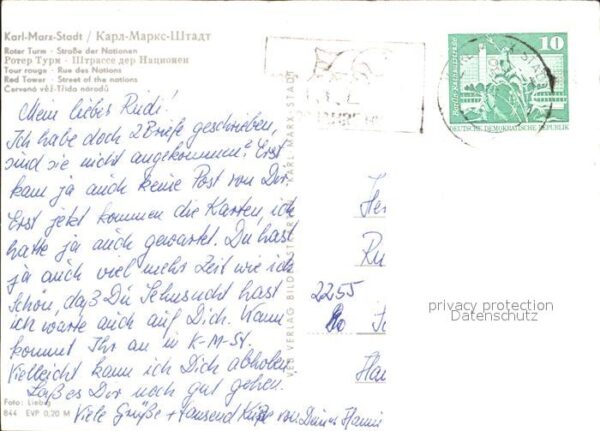 Karl-Marx-Stadt / Карл-Маркс-Штадт
Roter Turm · Straße der Nationen
Ротер Турм · Штрассе дер Национен
Tour rouge · Rue des Nations
Red Tower · Street of the nations
Červená věž-Třída národů
10
Berlin-Rathausstraße
DEUTSCHE DEMOKRATISCHE REPUBLIK
Mein liebes Rudi!
Ich habe doch 2 Briefe geschrieben,
sind sie nicht angekommen? Erst
kam ja auch keine Post von Dir.
Erst jetzt kommen die Karten, ich
hatte ja auch gewartet. Du hast
ja auch viel mehr Zeit wie ich
Schön, daß Du Sehnsucht hast
ich warte auch auf Dich. Wann
kommt Ihr an in K-M-St.
Vielleicht kann ich Dich abholen
Laß es Dir noch gut gehen.
Viele Grüße + tausend Küsse von Deiner Hanni
VEB VERLAG BILD KARL-MARX-STADT
Her
Ru
2255
Han
privacy protection
Datenschutz
Foto: Liebig
844 EVP 0,20 M